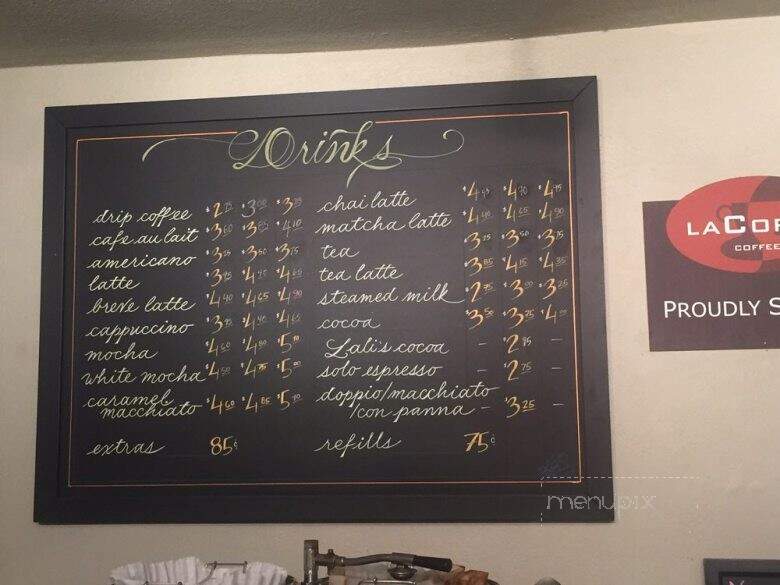 Drinks
drip coffee $2.75 $3.00 $3.25
cafe au lait $3.60 $3.85 $4.10
americano $3.25 $3.50 $3.75
latte $3.95 $4.40 $4.65
breve latte $4.40 $4.65 $4.90
cappuccino $3.95 $4.40 $4.65
mocha $4.50 $4.80 $5.10
white mocha $4.50 $4.75 $5.00
caramel
macchiato $4.60 $4.85 $5.10
extras 85¢
chai latte $4.45 $4.70 $4.95
matcha latte $4.40 $4.65 $4.90
tea $3.25 $3.50 $3.75
tea latte $3.85 $4.15 $4.35
steamed milk $2.75 $3.00 $3.25
cocoa $3.50 $3.75 $4.00
Lali's cocoa – $2.95 –
solo espresso – $2.75 –
doppio/macchiato
/con panna – $3.25 –
refills 75¢
LACO
COFFEE
PROUDLY S
menupix